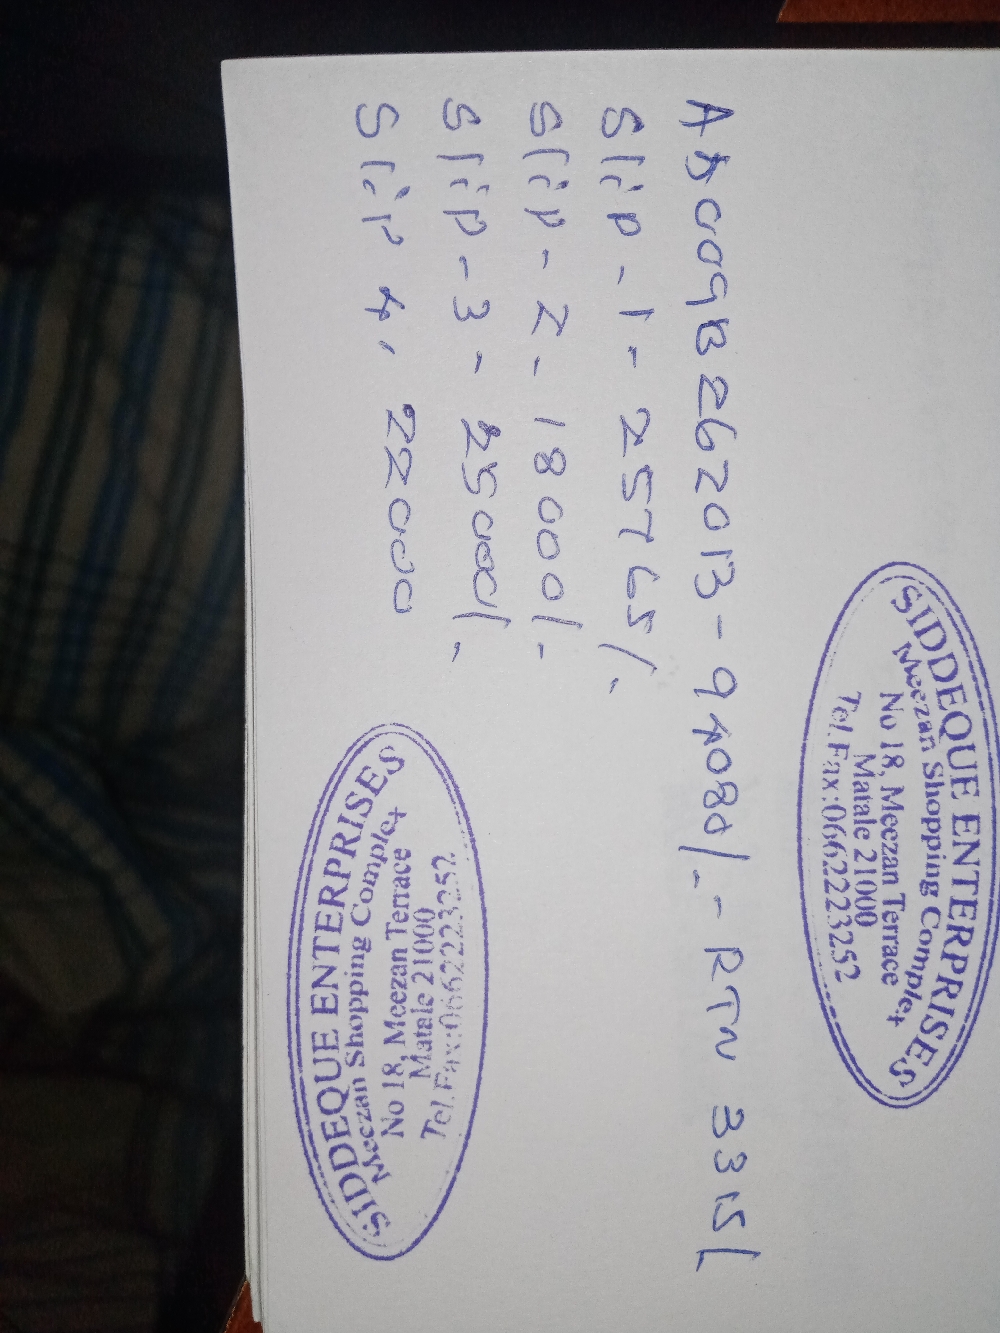 SIDDEQUE ENTERPRISES
Meezan Shopping Complex
No 18, Meezan Terrace
Matale 21000
Tel.Fax:0662223252
- RTN
Slip - 1 - 25765/-
Slip - 2 - 18000/-
Slip - 3 - 25000/-
Slip 4, 22000
SIDDEQUE ENTERPRISES
Meezan Shopping Complex
No 18, Meezan Terrace
Matale 21000
Tel.Fax:0662223252